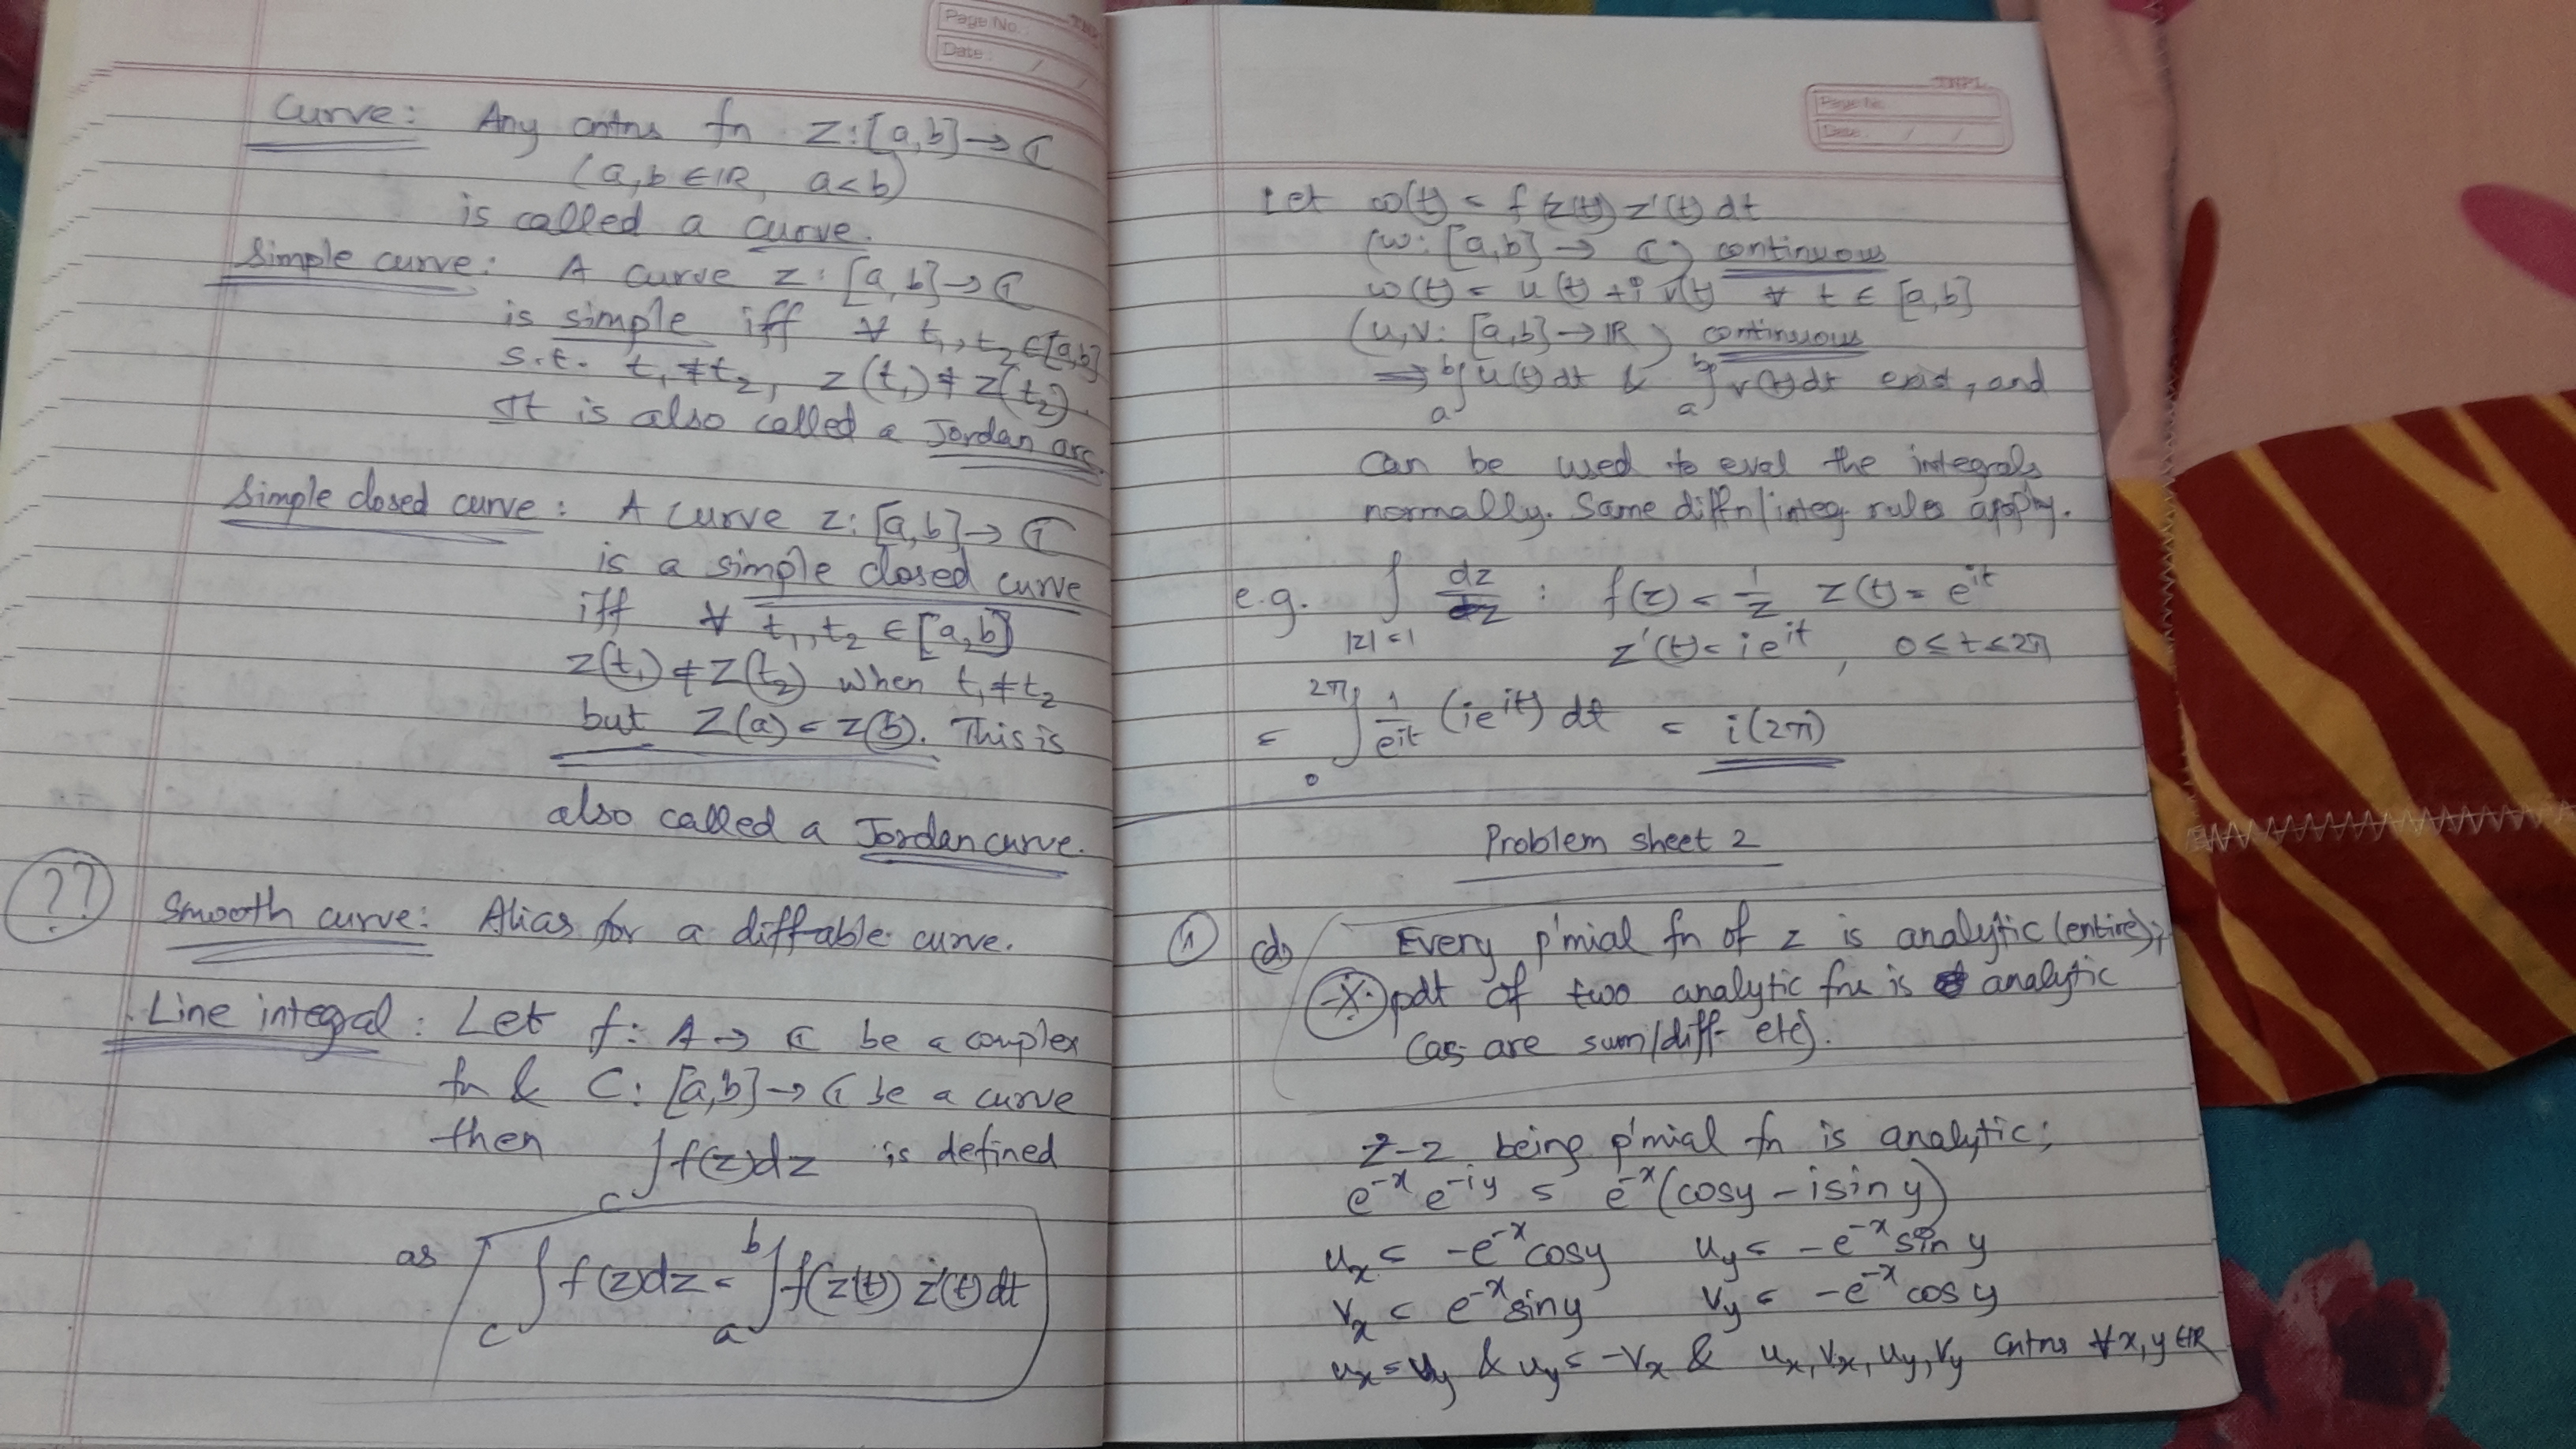 Page No.
Date: / /
Curve: Any cntns fn z:[a,b]→ℂ
(a,b∈ℝ, a<b)
is called a curve.
Simple curve: A curve z:[a,b]→ℂ
is simple iff ∀ t₁,t₂∈[a,b]
s.t. t₁≠t₂, z(t₁)≠z(t₂).
It is also called a Jordan arc.
Simple closed curve: A curve z:[a,b]→ℂ
is a simple closed curve
iff ∀ t₁,t₂∈[a,b]
z(t₁)≠z(t₂) when t₁≠t₂
but z(a)=z(b). This is
also called a Jordan curve.
?? Smooth curve: Alias for a diffable curve.
Line integral: Let f: A→ℂ be a complex
fn & C:[a,b]→ℂ be a curve
then ∫_C f(z)dz is defined
as ∫_C f(z)dz = ∫_a^b f(z(t)) z'(t)dt
TNPL
Page No.
Date: / /
Let ω(t) = f(z(t)) z'(t) dt
(ω:[a,b]→ℂ) continuous
ω(t) = u(t)+i v(t) ∀ t∈[a,b]
(u,v:[a,b]→ℝ) continuous
⇒ ∫_a^b u(t)dt & ∫_a^b v(t)dt exist, and
can be used to eval the integrals
normally. Same diffn/integ. rules apply.
e.g. ∫_{|z|=1} dz/z : f(z)=1/z z(t)=e^{it}
z'(t)=ie^{it}, 0≤t≤2π
= ∫_0^{2π} 1/e^{it} (ie^{it}) dt = i(2π)
Problem sheet 2
① (d) Every p'mial fn of z is analytic (entire);
pdt of two analytic fns is analytic
(as are sum/diff etc).
z-2 being p'mial fn is analytic;
e^{-x} e^{-iy} = e^{-x}(cosy - isiny)
u_x = -e^{-x}cosy u_y = -e^{-x}siny
v_x = e^{-x}siny v_y = -e^{-x}cosy
u_x=v_y & u_y=-v_x & u_x,v_x,u_y,v_y cntns ∀x,y∈ℝ